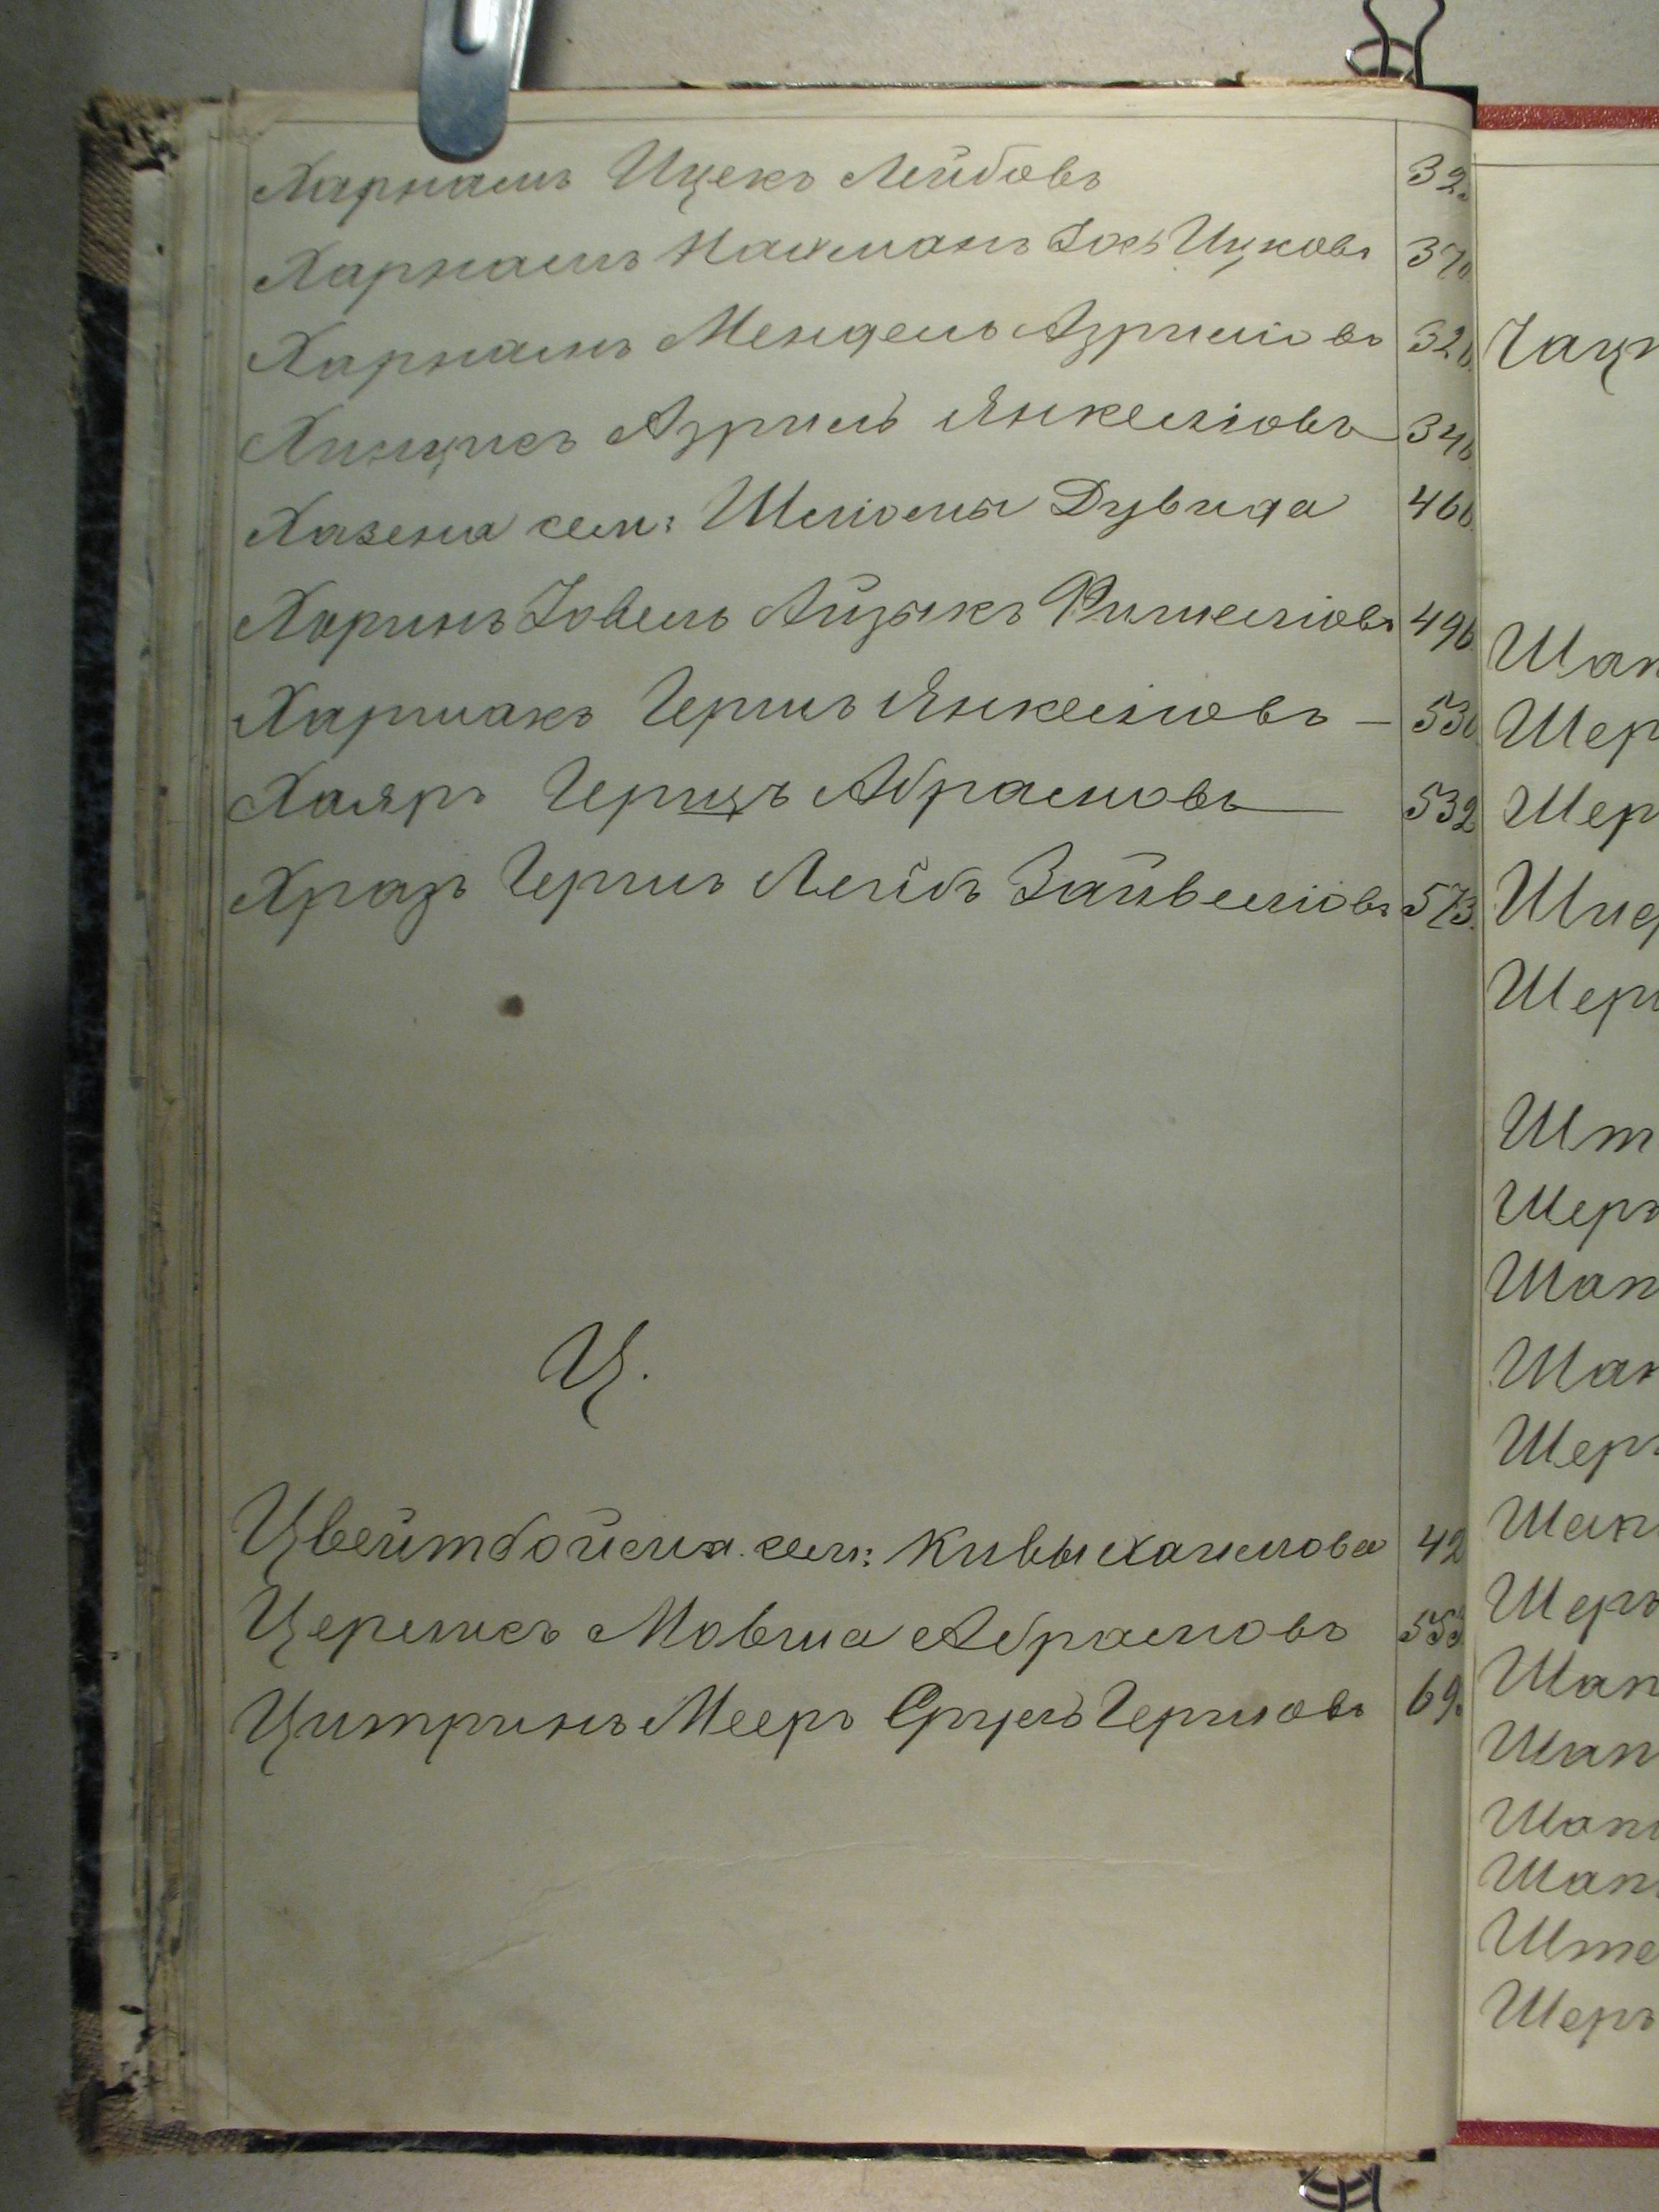 Харнамъ Ицекъ Лейбовъ 32.
Харнамъ Нахманъ Іосъ Ицковъ 37
Харнамъ Мендель Азриліовъ 32
Хинчукъ Азриль Янкеліовъ 34
Хазена сем: Шліомы Дувида 46
Харинъ Іовель Айзыкъ Фишкеліовъ 49
Харшакъ Гершъ Янкеліовъ — 53
Хаяръ Герцъ Абрамовъ 532
Храпъ Гершъ Лейбъ Зайвеліовъ 573.
Ц.
Цвейтбойма сем: Кивы Хаимова 42
Церешкъ Мовша Абрамовъ 553
Цитринъ Мееръ Сруль Гершовъ 69.
Чацк
Шап
Шер
Шер
Шпер
Шер
Шт
Шеръ
Шап
Шап
Шеръ
Шап
Шеръ
Шап
Шап
Шап
Шап
Ште
Шеръ